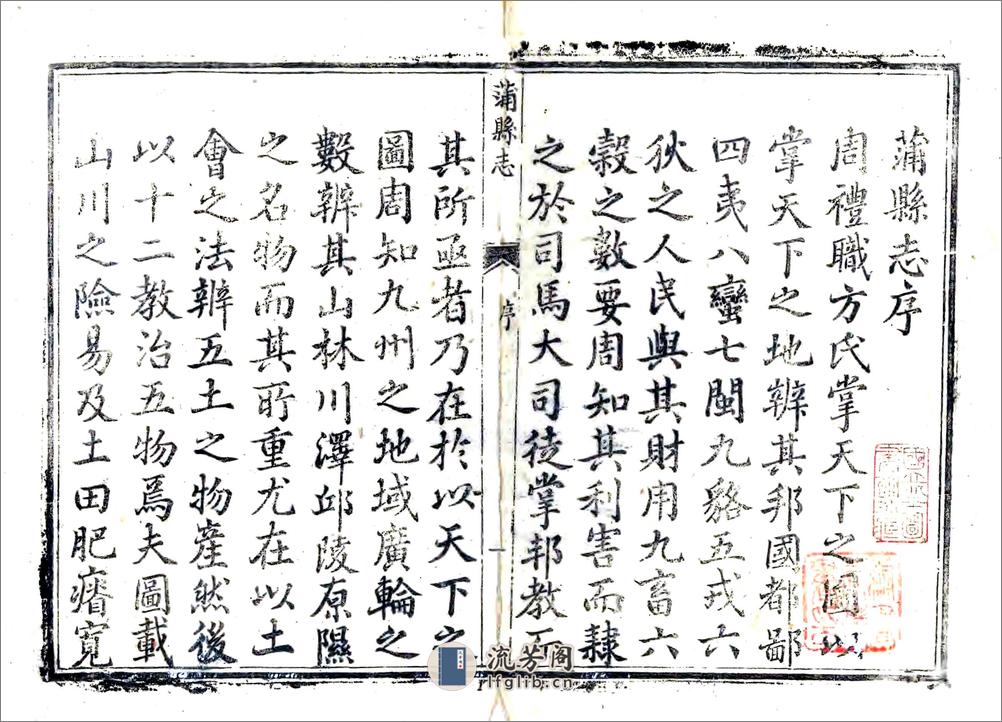 蒲縣志序
周禮職方氏掌天下之圖以
掌天下之地辨其邦國都鄙
四夷八蠻七閩九貉五戎六
狄之人民與其財用九畜六
穀之數要周知其利害而隸
之於司馬大司徒掌邦教而
蒲縣志
序
一
其所亟者乃在於以天下之
圖周知九州之地域廣輪之
數辨其山林川澤邱陵原隰
之名物而其所重尤在以土
會之法辨五土之物產然後
以十二教治五物焉夫圖載
山川之險易及土田肥瘠寬
流芳阁
rlfglib.cn